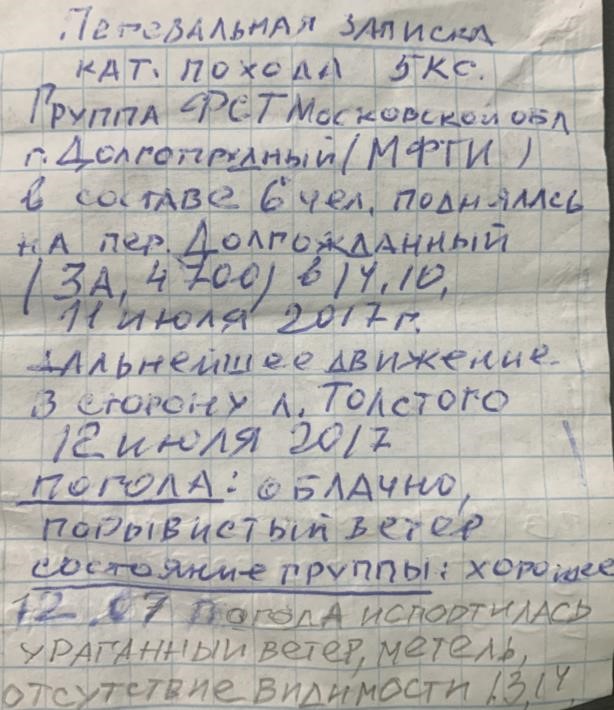 Перевальная записка
кат. похода 5КС.
Группа ФСТ Московской обл
г. Долгопрудный (МФТИ)
в составе 6 чел. поднялась
на пер. Долгожданный
(3А, 4700) в 14.10,
11 июля 2017 г.
дальнейшее движение
в сторону л. Толстого
12 июля 2017
погода: облачно,
порывистый ветер
состояние группы: хорошее
12.07 погода испортилась
ураганный ветер, метель,
отсутствие видимости 13,14